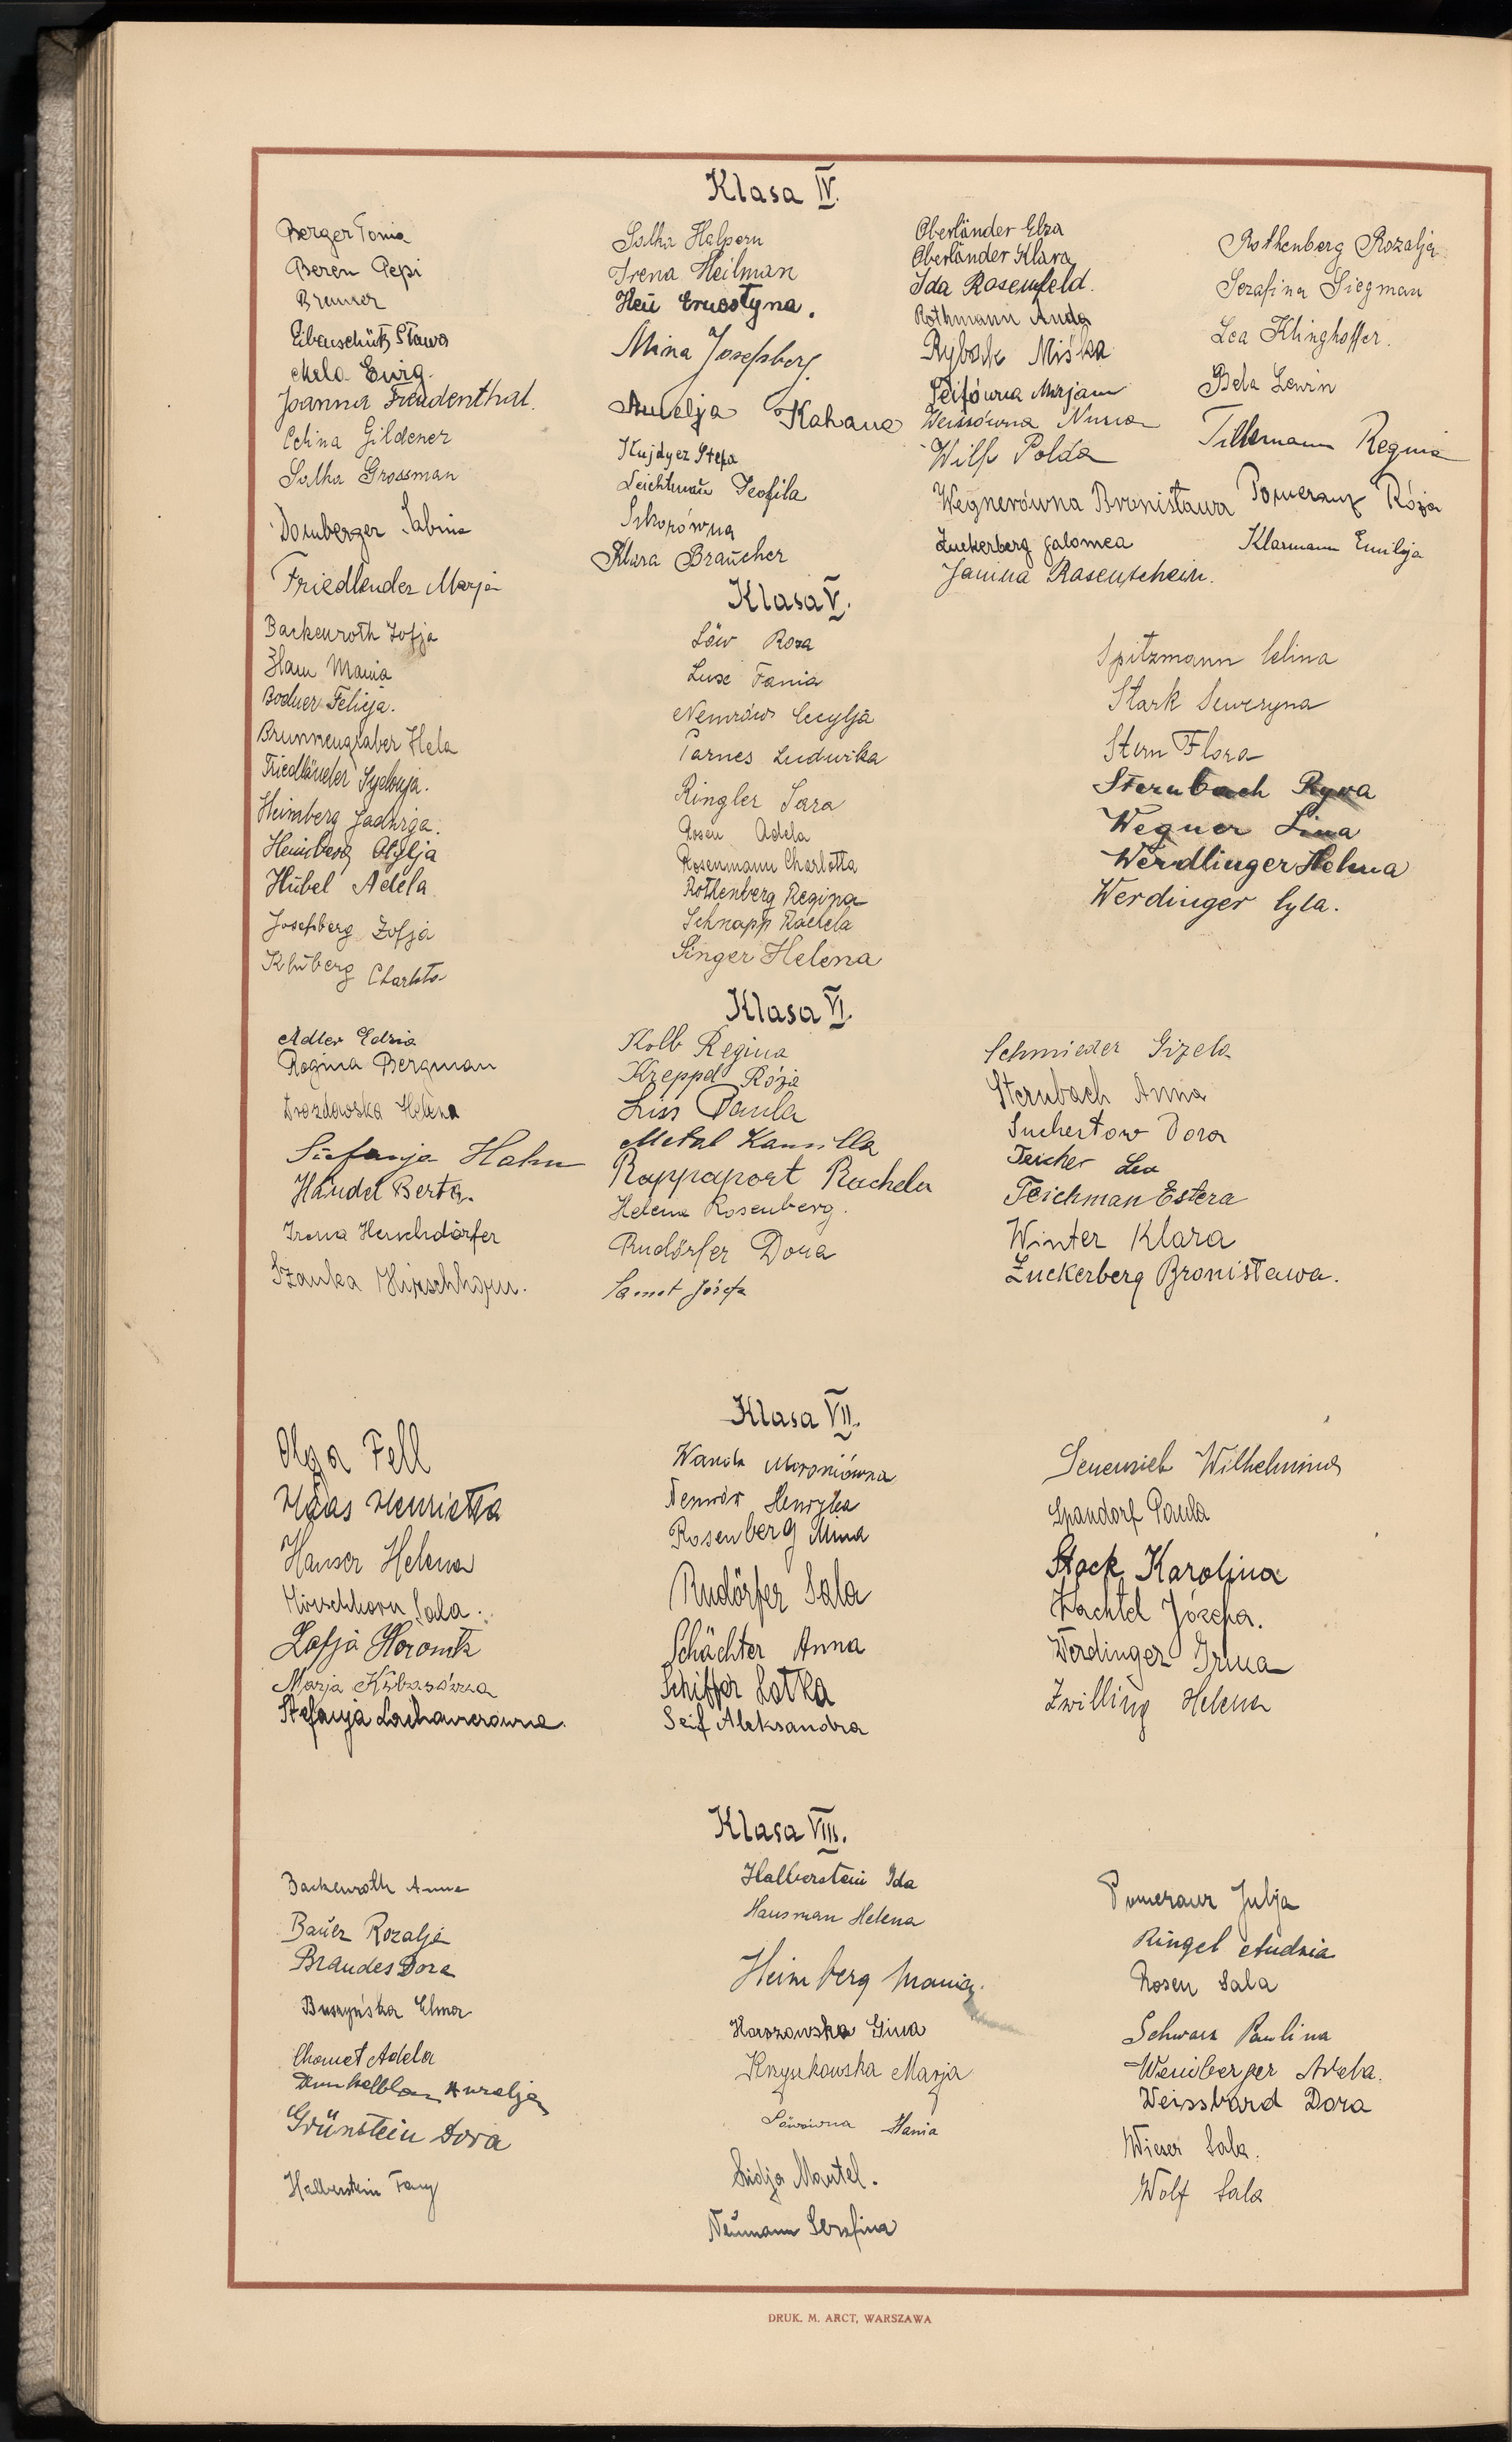 Klasa IV.
Berger Tonia
Beren Pepi
Bremer
Eibenschütz Sława
Mela Eurig.
Joanna Freudenthal.
Celina Gildener
Salka Grossman
Dornberger Sabina
Friedlender Marja
Salka Halpern
Irena Heilman
Heü Ernestyna.
Mina Josefsberg
Amelja Kahane
Kujdycz Stefa
Leichtmań Teofila
Sikorówna
Klara Braücher
Oberländer Elza
Oberländer Klara
Ida Rosenfeld.
Rothmann Anda
Rybak Miśka
Seifówna Mirjam
Weissówna Nusia
Wilf Polda
Wegnerówna Bronisława
Zuckerberg Salomea
Janina Rasenschein.
Rothenberg Rozalja
Serafina Siegman
Lea Klinghoffer.
Bela Lewin
Tillemann Regina
Pomeranz Róża
Klarmann Emilja
Klasa V.
Backenroth Zofja
Blau Mania
Bodner Felicja.
Brunnengraber Hela
Friedländer Sydonja.
Heimberg Jadwiga.
Heimberg Otylja
Hübel Adela
Josefsberg Zofja
Klüberg Charlota
Löw Roza
Luse Fania
Nemrów Cecylja
Parnes Ludwika
Ringler Sara
Rosen Adela
Rosenmann Charlotta
Rothenberg Regina
Schnapp Rachela
Singer Helena
Spitzmann Celina
Stark Seweryna
Stern Flora
Sternbach Rywa
Wegner Lina
Werdlinger Helena
Werdinger Cyla.
Klasa VI.
Adler Edzia
Regina Bergman
Drozdowska Helena
Stefanja Hahn
Händel Berta.
Irena Herschdörfer
Szanka Hirschhorn.
Kolb Regina
Kreppel Róża
Liss Paula
Metal Kamilla
Rappaport Rachela
Helena Rosenberg.
Rudörfer Dora
Samet Józefa
Schmieder Gizela
Sternbach Anna
Suchestow Dora
Teicher Lea
Teichman Estera
Winter Klara
Zuckerberg Bronisława.
Klasa VII.
Olga Fell
Haas Henrietta
Hauser Helena
Hirschhorn Sala.
Zofja Horowitz
Marja Kirbasówna
Stefanja Lachawerówna.
Wanda Moroniówna
Nemrów Henryka
Rosenberg Mina
Rudörfer Sala
Schächter Anna
Schiffer Lotka
Seif Aleksandra
Senensieb Wilhelmina
Spandorf Paula
Stock Karolina
Wachtel Józefa.
Werdinger Irena
Zwilling Helena
Klasa VIII.
Backenroth Anna
Baüer Rozalja
Brandes Dora
Buszyńska Elma
Chamet Adela
Dunkelblau Aurelja
Grünstein Dora
Halberstein Fany
Halberstein Ida
Hausman Helena
Heimberg Mania.
Harszowska Gina
Knyukowska Marja
Löwówna Hania
Sidja Mantel.
Neümann Serafina
Pomeranz Julja
Ringel Andzia
Rosen Sala
Schwarz Paulina
Weinberger Adela.
Weissbard Dora
Wieser Sala.
Wolf Sala
DRUK. M. ARCT, WARSZAWA